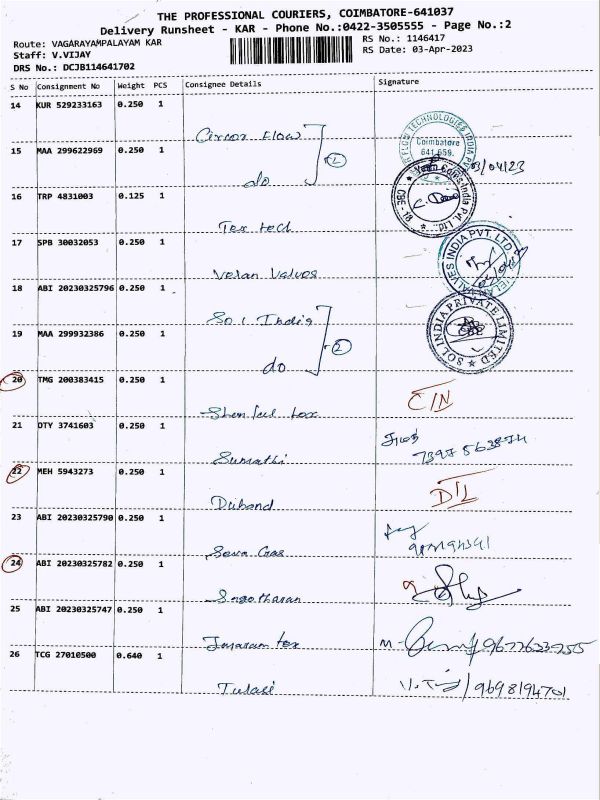 THE PROFESSIONAL COURIERS, COIMBATORE-641037
Delivery Runsheet - KAR - Phone No.:0422-3505555 - Page No.:2
Route: VAGARAYAMPALAYAM KAR
RS No.: 1146417
Staff: V.VIJAY
RS Date: 03-Apr-2023
DRS No.: DCJB114641702
S No Consignment No Weight PCS Consignee Details Signature
14 KUR 529233163 0.250 1
Circor Flow
FLOW TECHNOLOGIES INDIA PVT
Coimbatore
641 659.
15 MAA 299622969 0.250 1
do
1
03/04/23
16 TRP 4831003 0.125 1
Tex tech
CBE - 18
India Pvt. Ltd.
17 SPB 30032053 0.250 1
Velan Valves
VALVES INDIA PVT. LTD
18 ABI 20230325796 0.250 1
So.l. India
19 MAA 299932386 0.250 1
do
2
SOL INDIA PRIVATE LIMITED
20 TMG 200383415 0.250 1
tex
C/N
21 DTY 3741603 0.250 1
Sumathi
22 MEH 5943273 0.250 1
Duhand
DTL
23 ABI 20230325790 0.250 1
Seva Gas
24 ABI 20230325782 0.250 1
25 ABI 20230325747 0.250 1
tex
M-
9677623755
26 TCG 27010500 0.640 1
Tulasi
9698194701